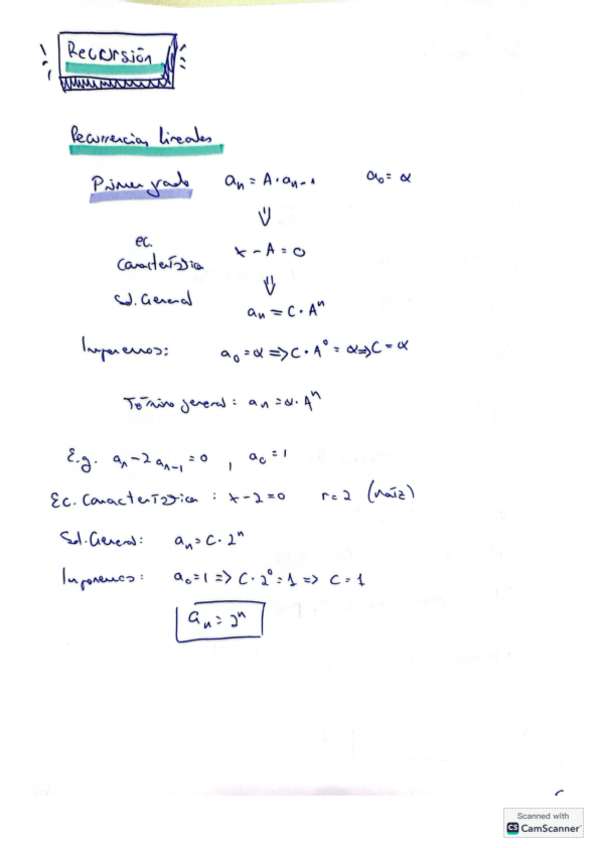 Recursión
Recurrencias lineales
Primer grado aₙ = A · aₙ₋₁ a₀ = α
⇓
ec. característica x - A = 0
⇓
Sol. General aₙ = C · Aⁿ
Imponemos: a₀ = α => C · A⁰ = α => C = α
Término general: aₙ = α · Aⁿ
E.g. aₙ - 2aₙ₋₁ = 0 , a₀ = 1
Ec. Característica : x - 2 = 0 r = 2 (raíz)
Sol. General: aₙ = C · 2ⁿ
Imponemos: a₀ = 1 => C · 2⁰ = 1 => C = 1
aₙ = 2ⁿ
Scanned with
CS CamScanner